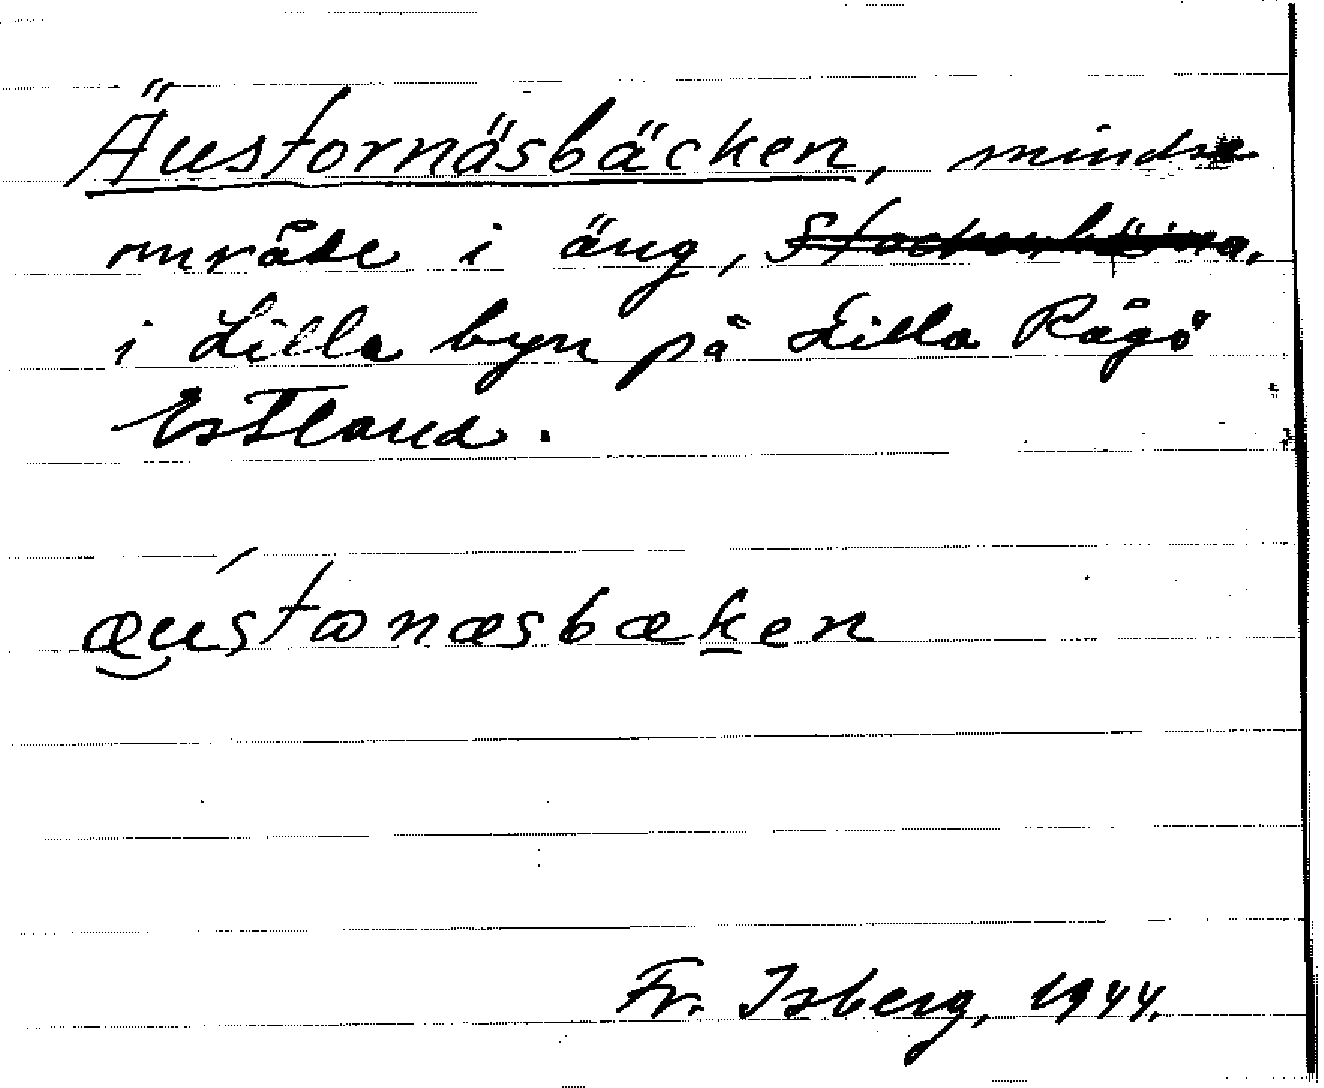 Äustornäsbäcken, mindre
område i äng,
i Lilla byn på Lilla Rågö
Estland.
æustωnæsbæken
Fr. Isberg, 1944.